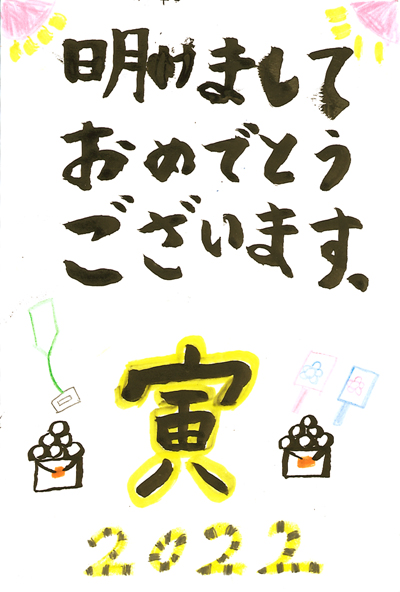 明けまして
おめでとう
ございます。
寅
2022